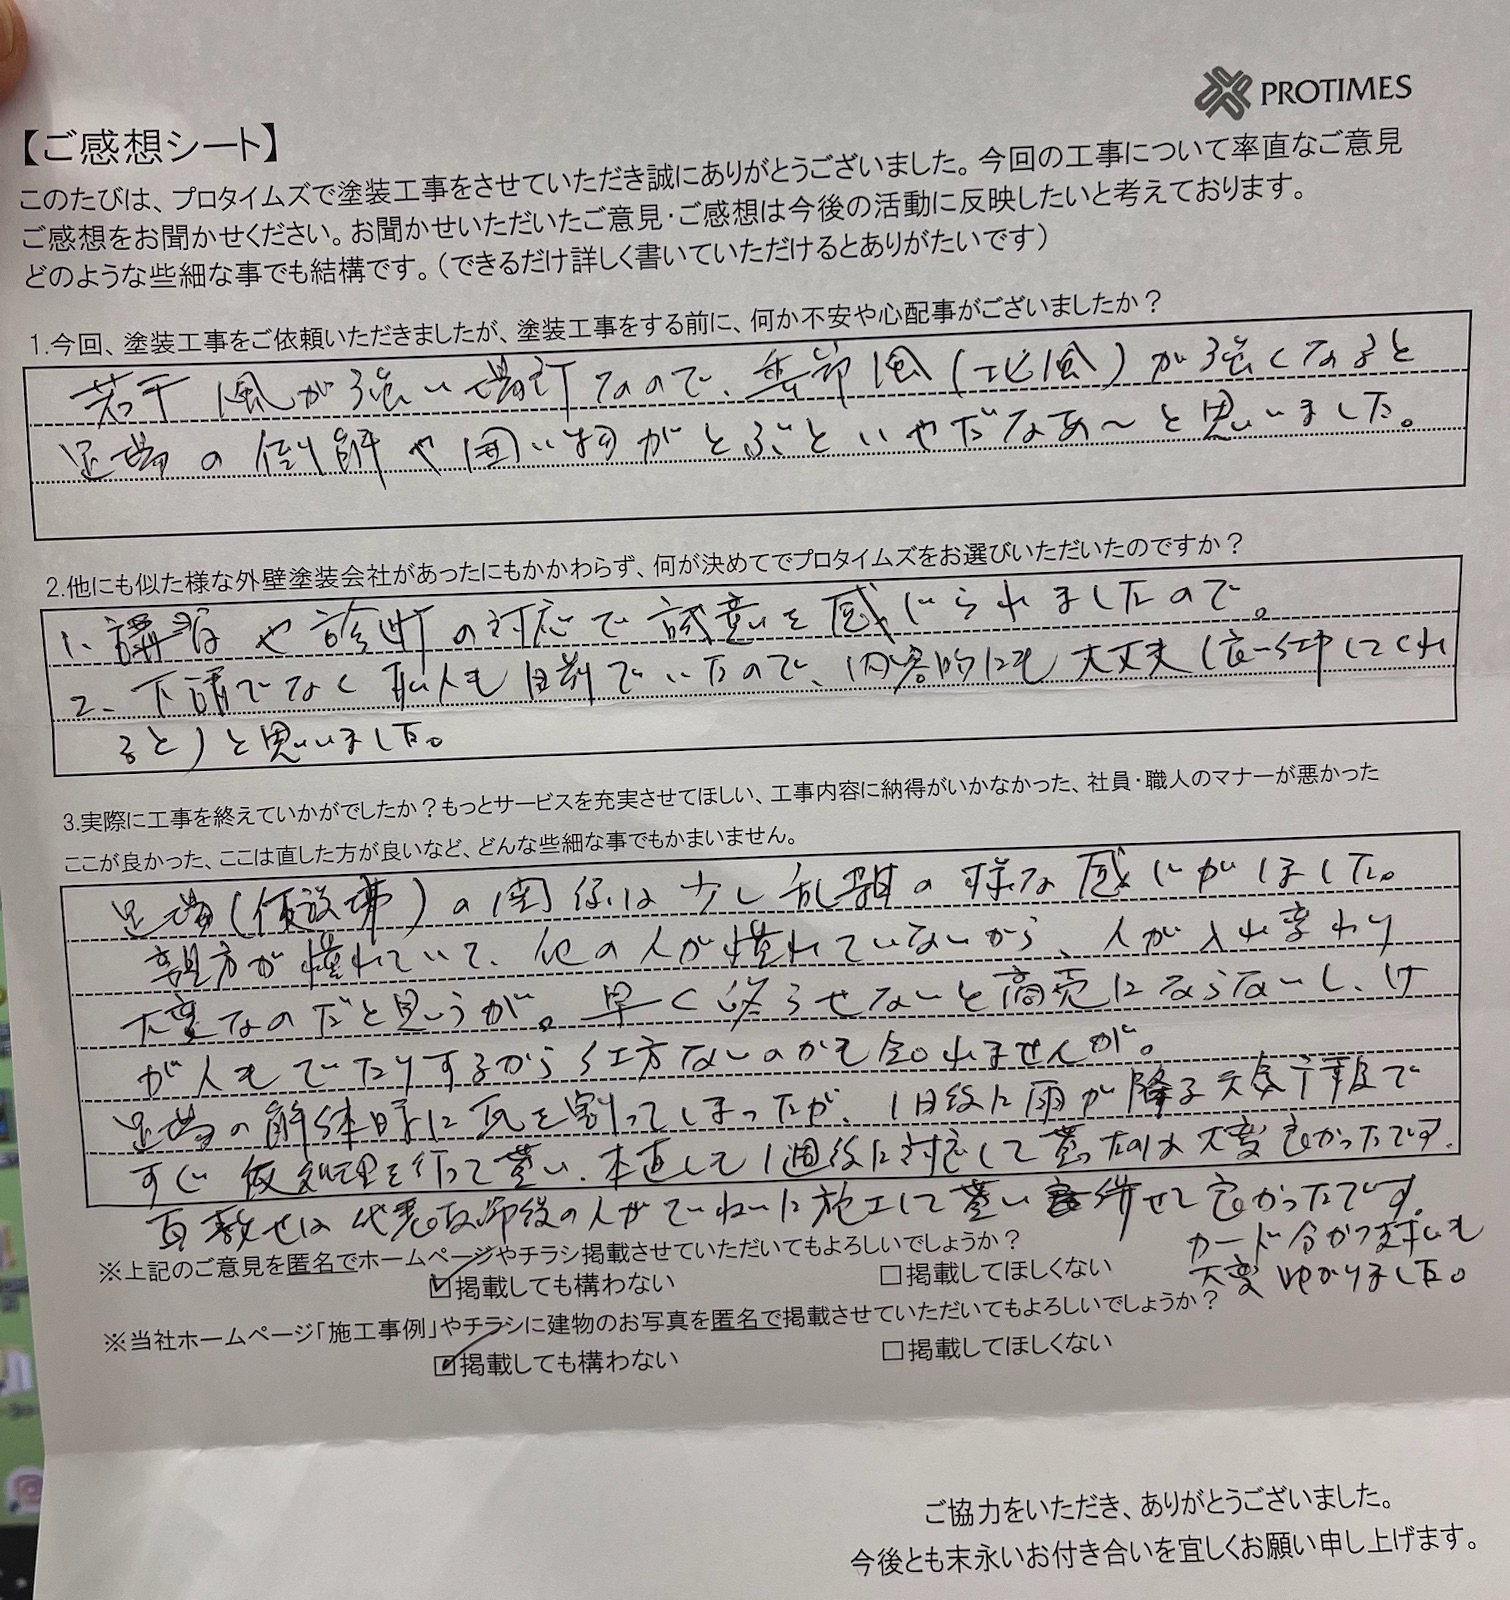 PROTIMES
【ご感想シート】
このたびは、プロタイムズで塗装工事をさせていただき誠にありがとうございました。今回の工事について率直なご意見
ご感想をお聞かせください。お聞かせいただいたご意見・ご感想は今後の活動に反映したいと考えております。
どのような些細な事でも結構です。(できるだけ詳しく書いていただけるとありがたいです)
1.今回、塗装工事をご依頼いただきましたが、塗装工事をする前に、何か不安や心配事がございましたか？
若干 風が強い場所なので、季節風(北風)が強くなると
足場の倒解や囲い物がとぶといやだなあ～と思いました。
2.他にも似た様な外壁塗装会社があったにもかかわらず、何が決めてでプロタイムズをお選びいただいたのですか？
1、講習や診断の対応で誠意を感じられましたので。
2、下請でなく職人も自前でいたので、内容的にも大丈夫(良い仕事してくれ
ると)と思いました。
3.実際に工事を終えていかがでしたか？もっとサービスを充実させてほしい、工事内容に納得がいかなかった、社員・職人のマナーが悪かった
ここが良かった、ここは直した方が良いなど、どんな些細な事でもかまいません。
足場(仮設)の関係は少し乱雑の様な感じがしました。
親方が慣れていて、他の人が慣れていないから、人が入れ変わり
大変なのだと思うが。早く終らせないと商売にならないし、け
が人もでたりするから仕方ないのかも知れませんが。
足場の解体時に瓦を割ってしまったが、1日後に雨が降る天気予報で
すぐ仮処理を行って貰い、本直しも1週後に対応して貰ったのは大変良かったです。
瓦 の人がていねいに施工して貰い 併せて良かったです。
カード分かつ支払いも
大変 ゆかりました。
※上記のご意見を匿名でホームページやチラシ掲載させていただいてもよろしいでしょうか？
☑掲載しても構わない □掲載してほしくない
※当社ホームページ「施工事例」やチラシに建物のお写真を匿名で掲載させていただいてもよろしいでしょうか？
☑掲載しても構わない □掲載してほしくない
ご協力をいただき、ありがとうございました。
今後とも末永いお付き合いを宜しくお願い申し上げます。